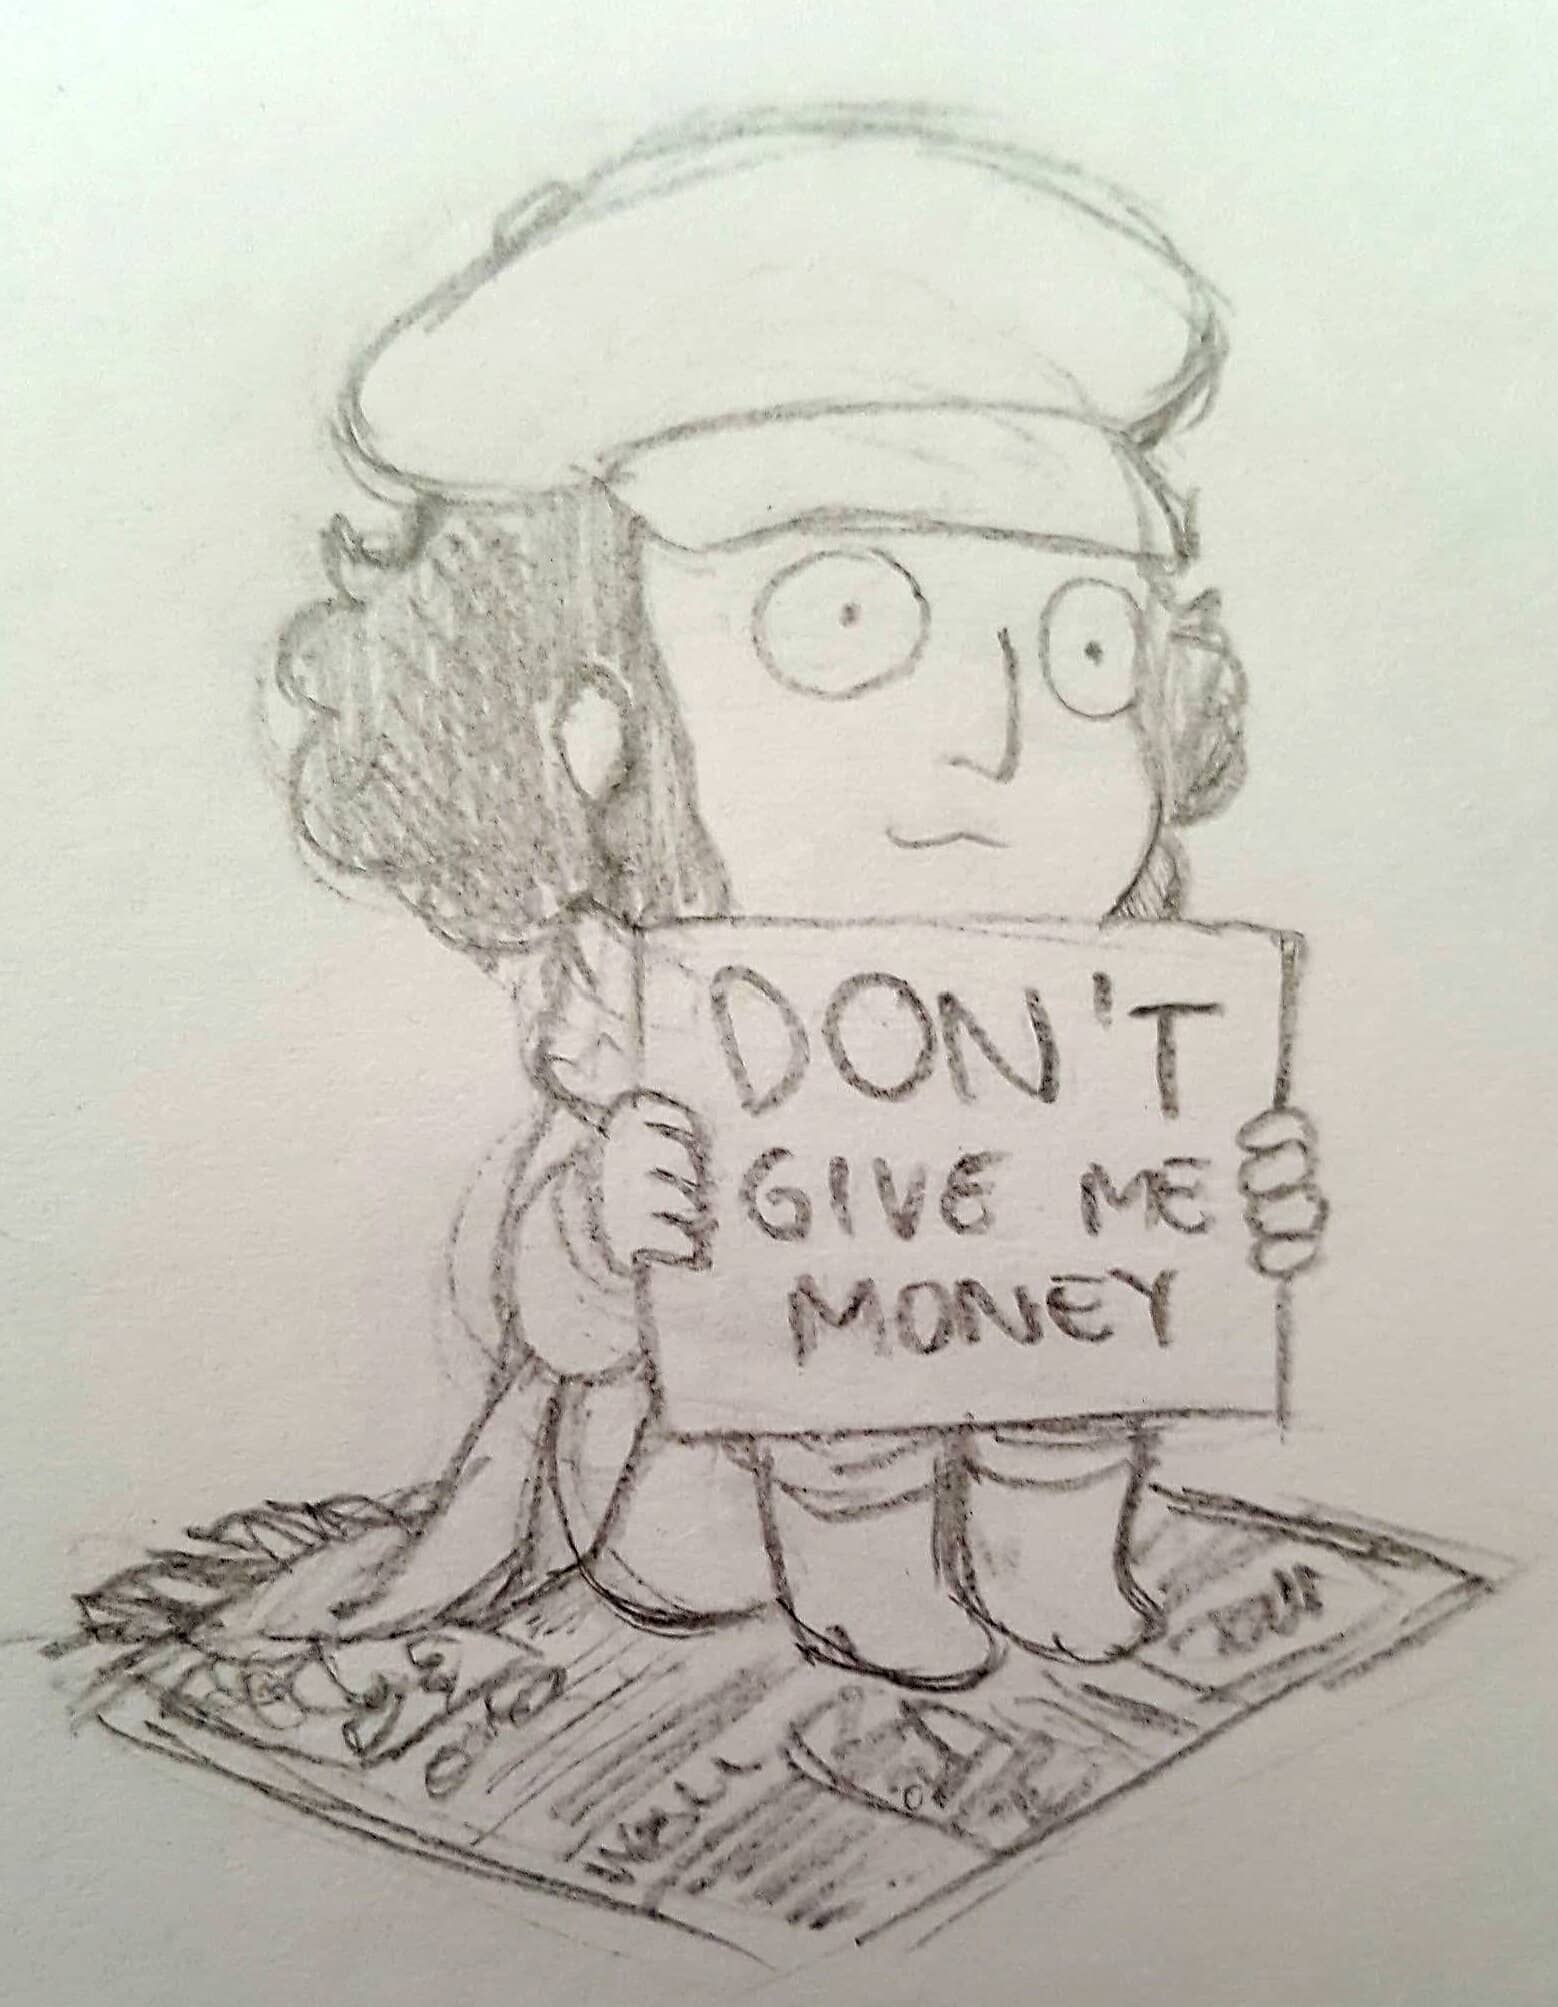 DON'T
GIVE ME
MONEY